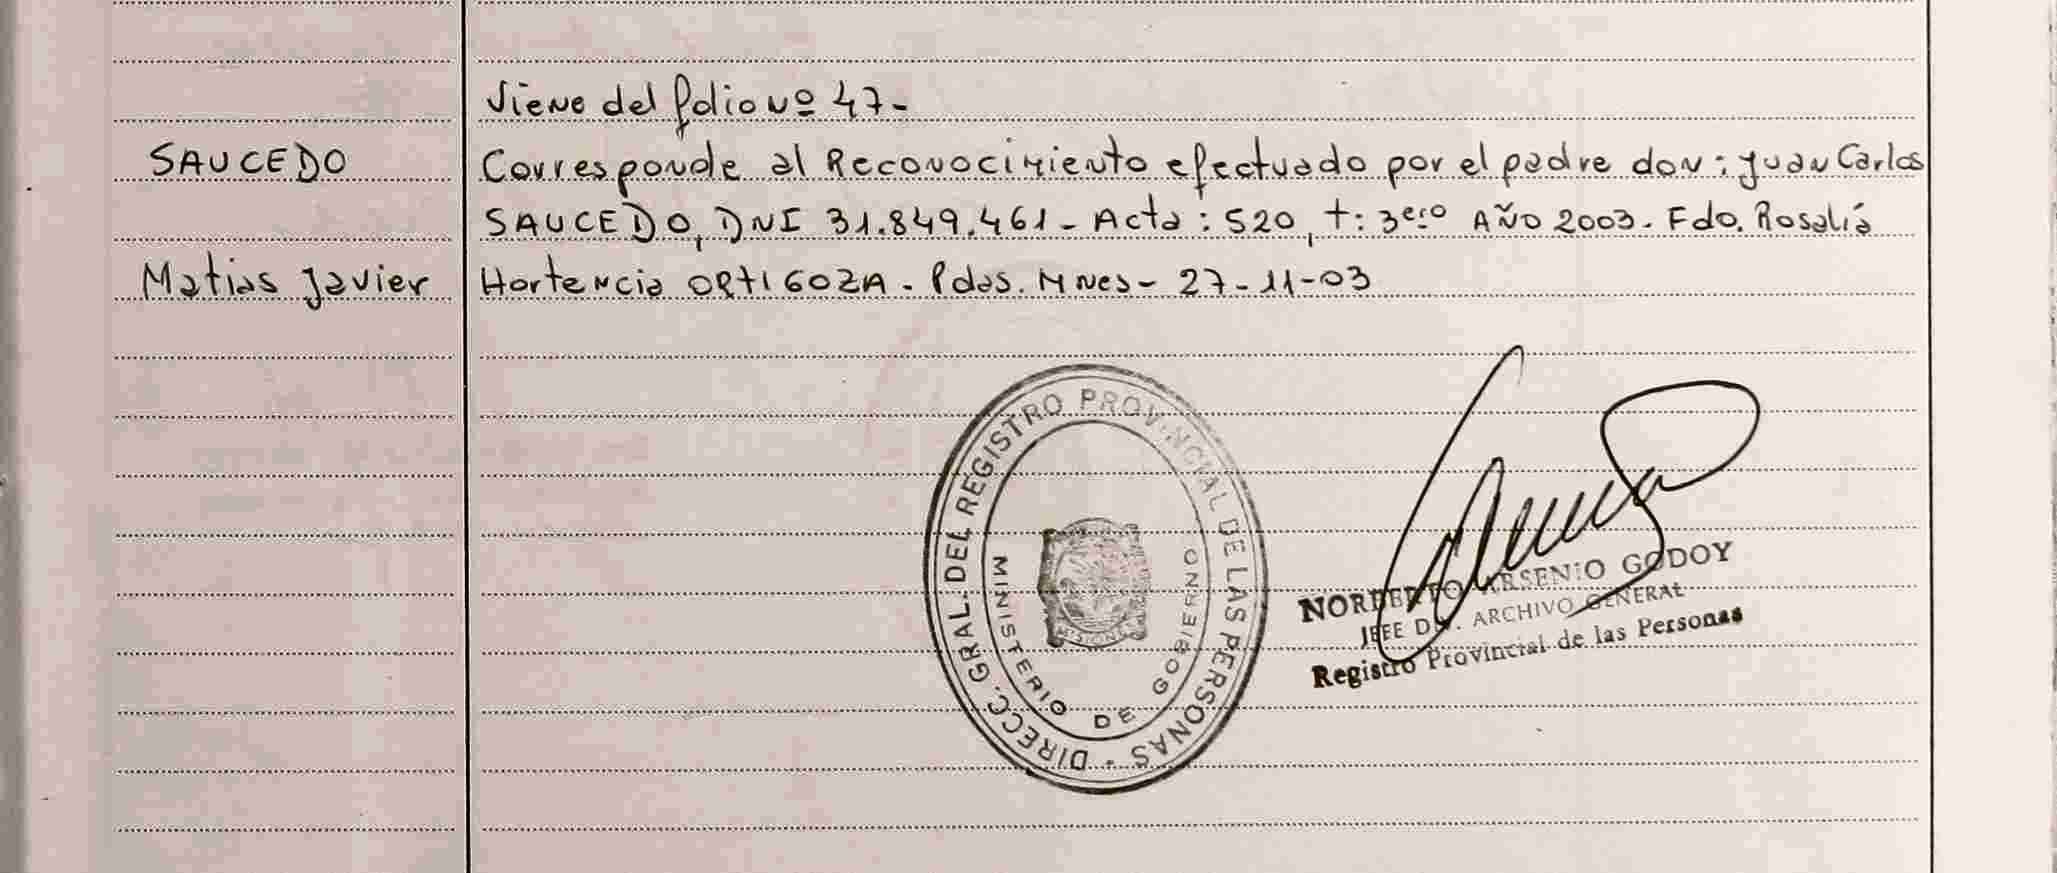 Viene del folio nº 47-
SAUCEDO
Corresponde al Reconocimiento efectuado por el padre don: Juan Carlos
SAUCEDO, DNI 31.849.461- Acta: 520, t: 3ero Año 2003. Fdo. Rosalía
Matias Javier
Hortencia ORTIGOZA. Pdas. Mnes- 27-11-03
DIRECC. GRAL. DEL REGISTRO PROVINCIAL DE LAS PERSONAS
MINISTERIO DE GOBIERNO
MISIONES
NORBERTO ARSENIO GODOY
JEFE DIV. ARCHIVO GENERAL
Registro Provincial de las Personas